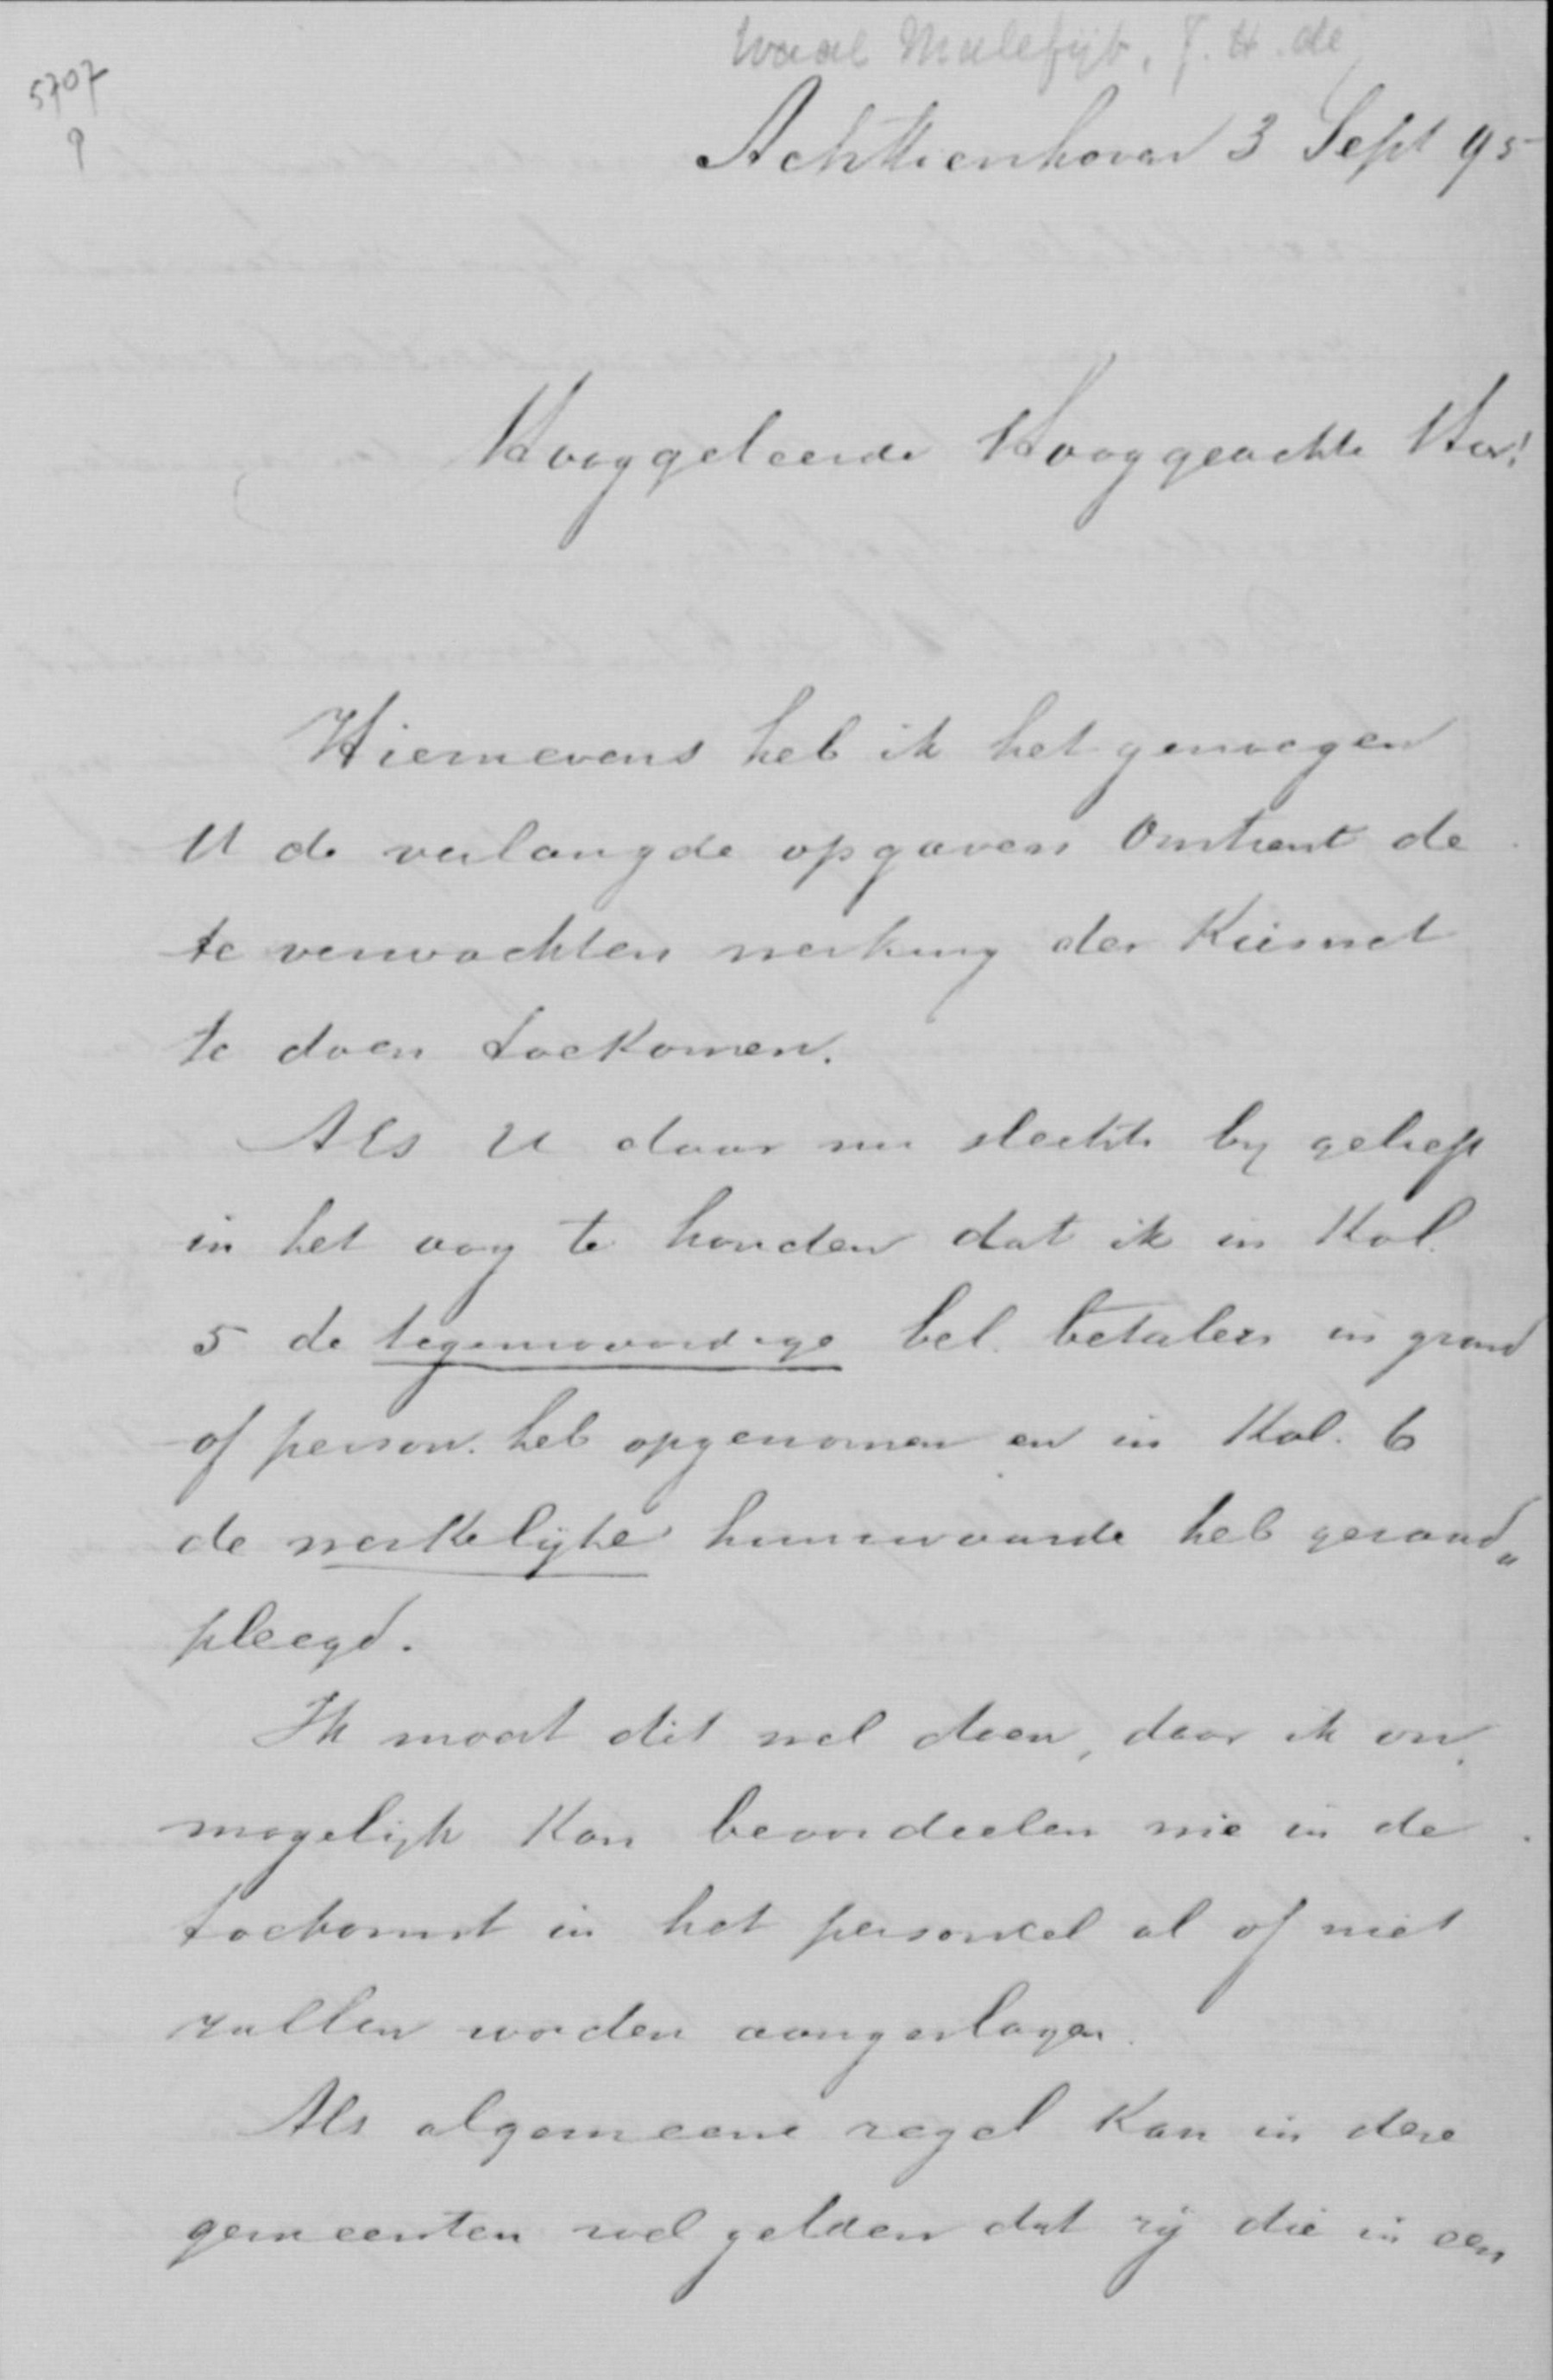 Waal Malefijt, J. H. de
5707
Achttienhoven 3 Sept 95
Hooggeleerde Hooggeachte Heer!
Hiernevens heb ik het genoegen
U de verlangde opgaven omtrent de
te verwachten werking der Kieswet
te doen toekomen.
Als U daar nu slechts by gelieft
in het oog te houden dat ik in Kol.
5 de tegenwoordige bel. betalers in grond
of person. heb opgenomen en in Kol. 6
de werkelijke huurwaarde heb geraad„
pleegd.
Ik moest dit wel doen, daar ik on„
mogelijk kan beoordeelen wie in de
toekomst in het personeel al of niet
zullen worden aangeslagen.
Als algemeene regel kan in deze
gemeenten wel gelden dat zij die in een